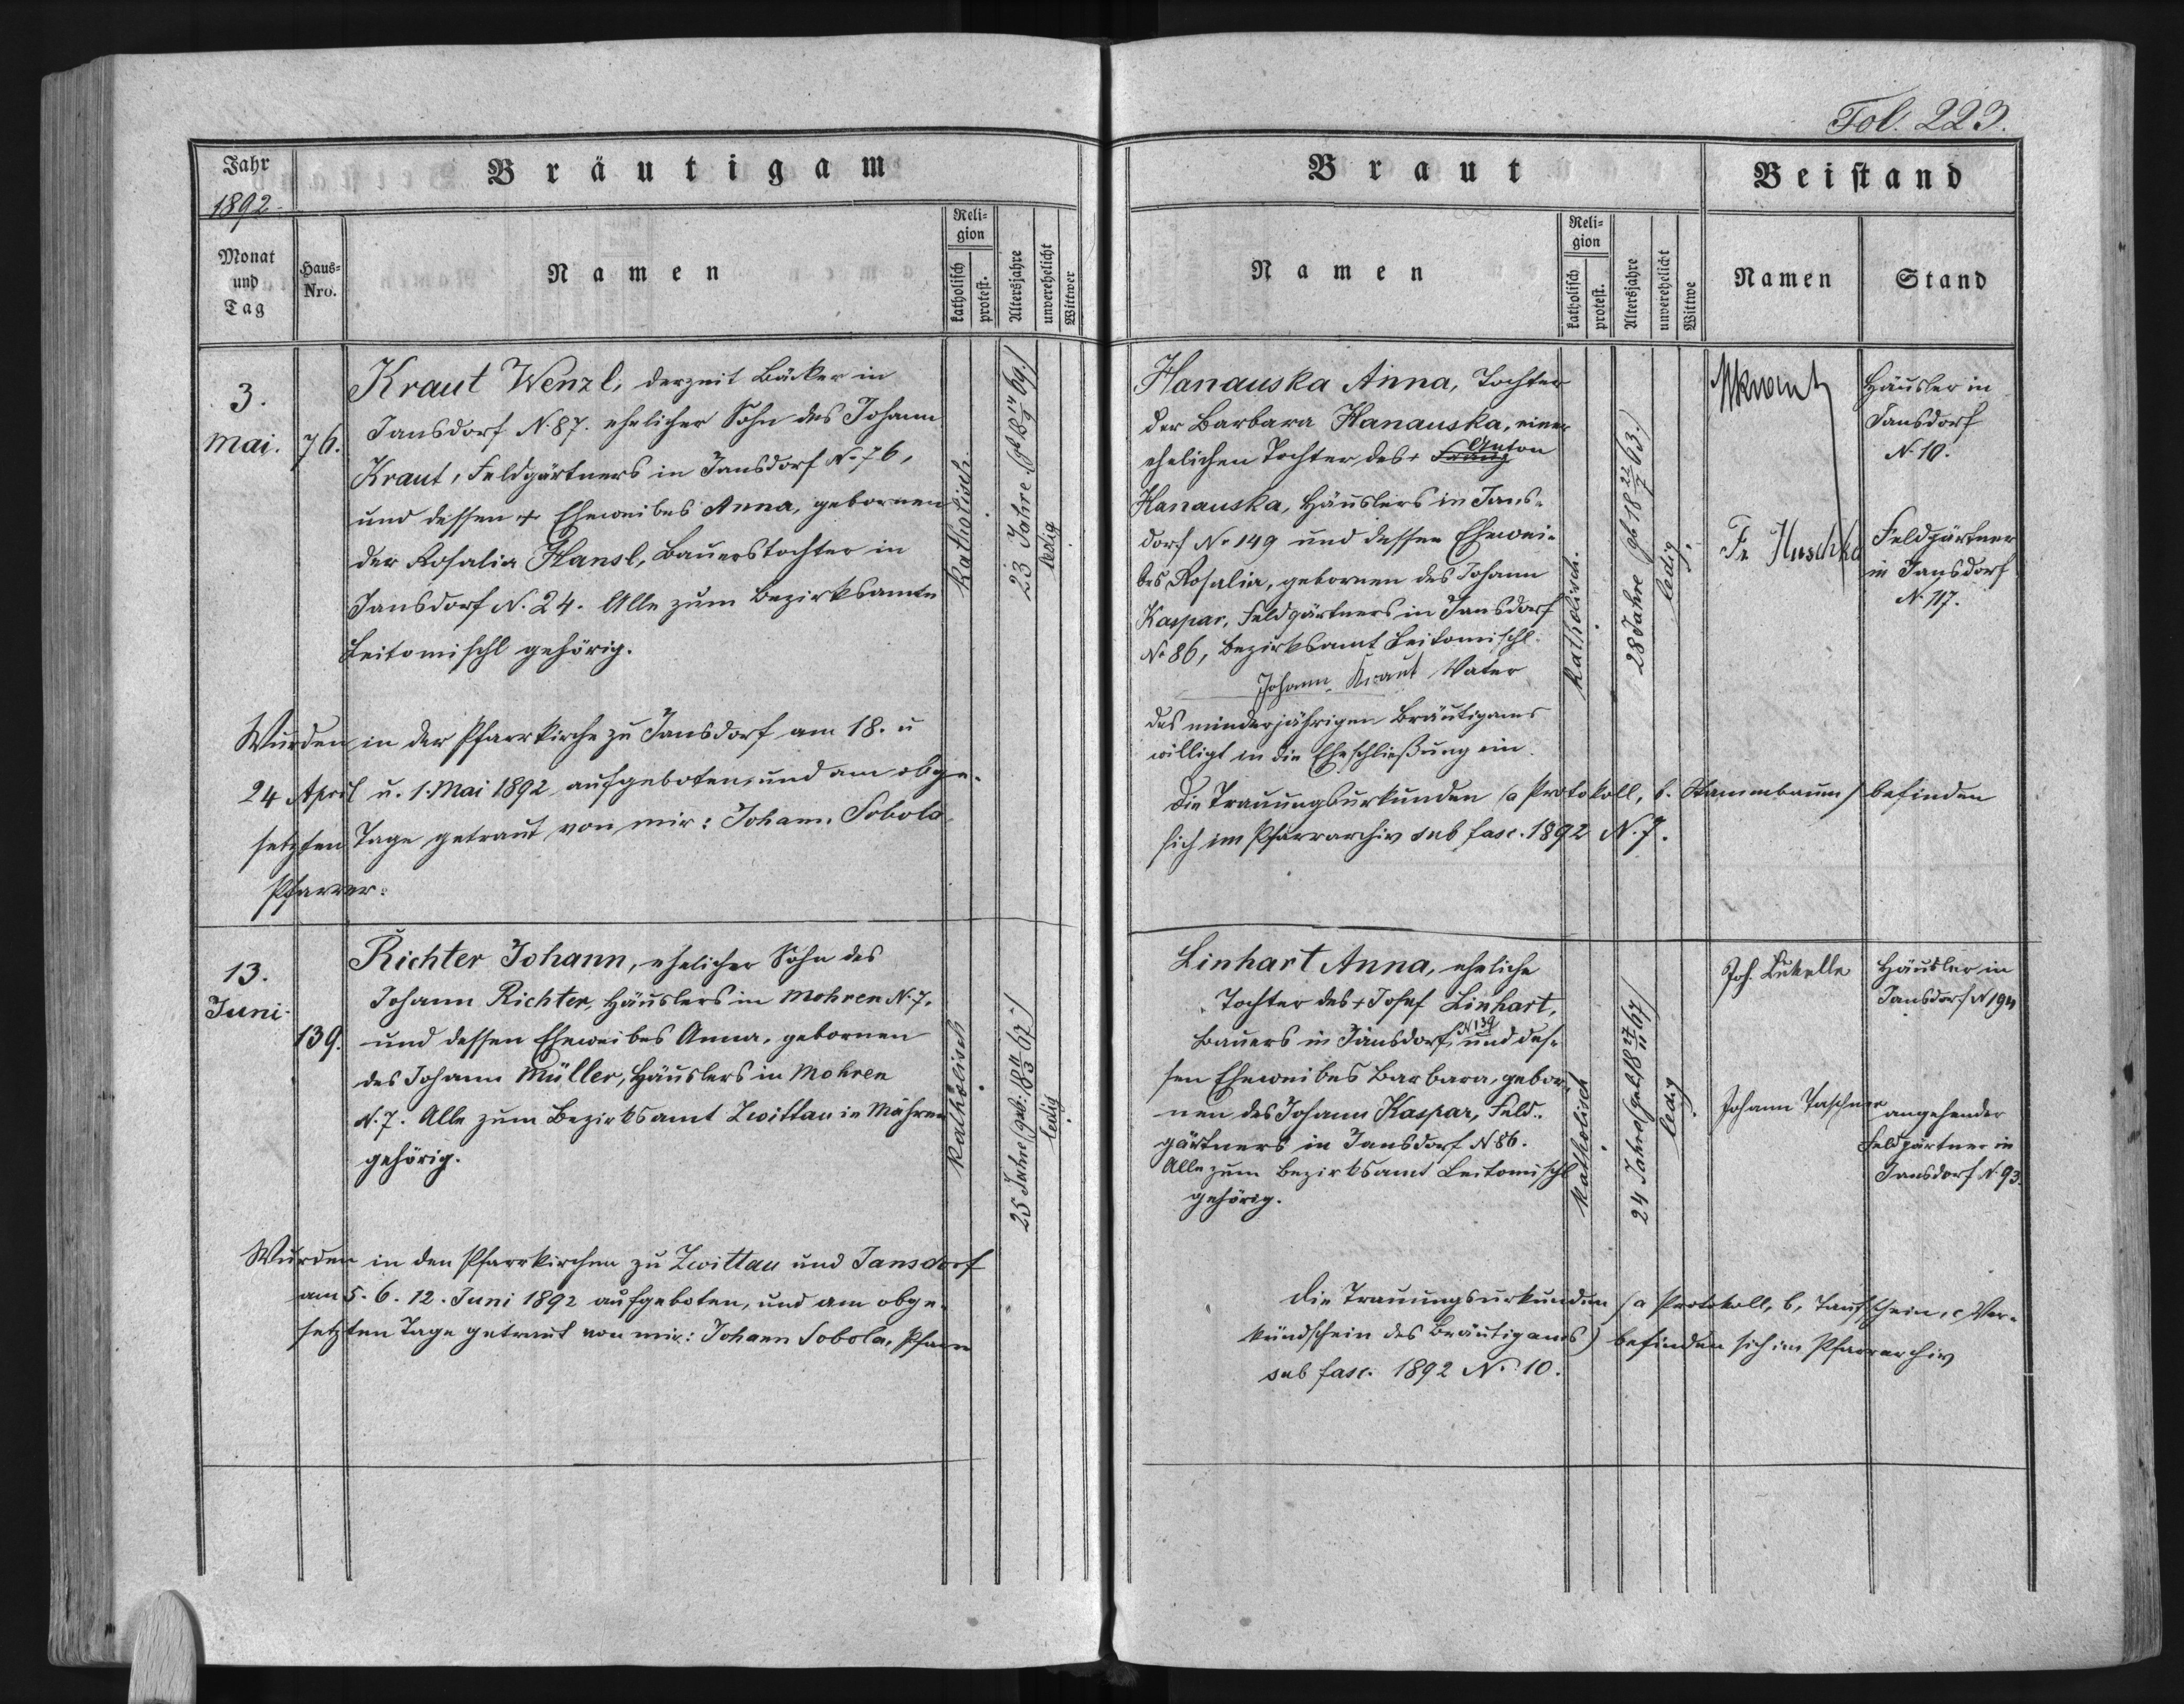 Fol. 223.
Jahr
1892.
Bräutigam
Braut
Beistand
Monat
und
Tag
Haus=
Nro.
Namen
Reli=
gion
katholisch
protest.
Altersjahre
unverehelicht
Wittwer
Namen
Reli=
gion
katholisch
protest.
Altersjahre
unverehelicht
Wittwe
Namen
Stand
3.
Mai.
76.
Kraut Wenzl, derzeit Bäcker in
Jansdorf N. 87. ehelicher Sohn des Johann
Kraut, Feldgärtners in Jansdorf N. 76,
und dessen + Eheweibes Anna, gebornen
der Rosalia Hansl, Bauerstochter in
Jansdorf N. 24. Alle zum Bezirksamte
Leitomischl gehörig.
katholisch.
23 Jahre (gb 18 14/9 69.)
ledig
Wurden in der Pfarrkirche zu Jansdorf am 18. u
24 April u. 1. Mai 1892 aufgeboten, und am obge-
setzten Tage getraut von mir: Johann Sobola
Pfarrer.
Hanauska Anna, Tochter
der Barbara Hanauska, einer
ehelichen Tochter des + Franz Anton
Hanauska, Häuslers in Jans-
dorf N. 149 und dessen Ehewei-
bes Rosalia, gebornen des Johann
Kaspar, Feldgärtners in Jansdorf
N. 86, Bezirksamt Leitomischl.
Johann Kraut Vater
des minderjährigen Bräutigams
willigt in die Eheschließung ein.
Die Trauungsurkunden (a Protokoll, b. Stammbaum) befinden
sich im Pfarrarchiv sub fasc. 1892 N. 7.
katholisch.
28 Jahre (gb 18 /7 63.)
ledig.
Häusler in
Jansdorf
N. 10.
Fr. Huschka
Feldgärtner
in Jansdorf
N. 117.
13.
Juni.
139.
Richter Johann, ehelicher Sohn des
Johann Richter, Häuslers in Mohren N. 7.
und dessen Eheweibes Anna, gebornen
des Johann Müller, Häuslers in Mohren
N. 7. Alle zum Bezirksamt Zwittau in Mähren
gehörig.
katholisch
25 Jahre (geb: 18 11/3 67.)
ledig
Wurden in den Pfarrkirchen zu Zwittau und Jansdorf
am 5. 6. 12. Juni 1892 aufgeboten, und am obge-
setzten Tage getraut von mir: Johann Sobola, Pfarrer
Linhart Anna, eheliche
Tochter des + Josef Linhart,
Bauers in Jansdorf N 139 und des-
sen Eheweibes Barbara, gebor-
nen des Johann Kaspar, Feld-
gärtners in Jansdorf N 86.
Alle zum Bezirksamt Leitomischl
gehörig.
katholisch
24 Jahre (geb 18 27/11 67)
ledig
Joh.
Häusler in
Jansdorf N 194
Johann Taschner
angehender
Feldgärtner in
Jansdorf N. 93.
Die Trauungsurkunden (a Protokoll, b, Taufschein, c Ver-
kündschein des Bräutigams) befinden sich im Pfarrarchiv
sub fasc. 1892 N. 10.